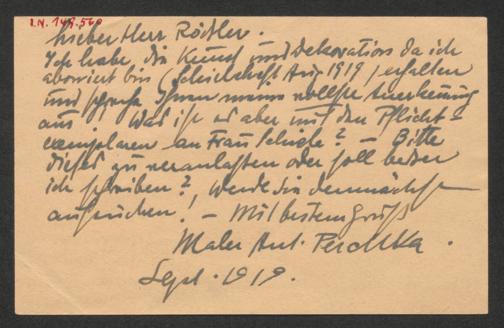 I.N. 149.560
Lieber Herr Rössler.
Ich habe die Kunst und Dekoration da ich
abonniert bin (Schieleheft Aug 1919) erhalten
und spreche Ihnen meine vollste Anerkennung
aus! Was ist es aber mit den Pflicht-
exemplaren an Frau Schiele? – Bitte
dieses zu veranlassen oder soll
ich schreiben? Werde Sie demnächst
aufsuchen! – Mit bestem Gruß
Maler Ant. Peschka.
Sept. 1919.